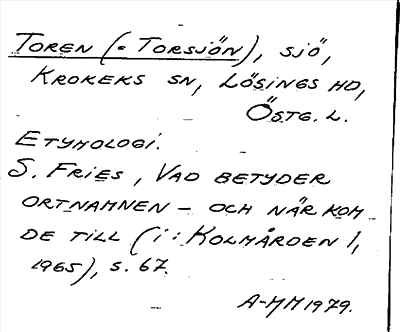 TOREN (= TORSJÖN), SJÖ,
KROKEKS SN, LÖSINGS HD,
ÖSTG. L.
ETYMOLOGI.
S. FRIES, VAD BETYDER
ORTNAMNEN – OCH NÄR KOM
DE TILL (i: KOLMÅRDEN 1,
1965), S. 67.
A-MM 1979.